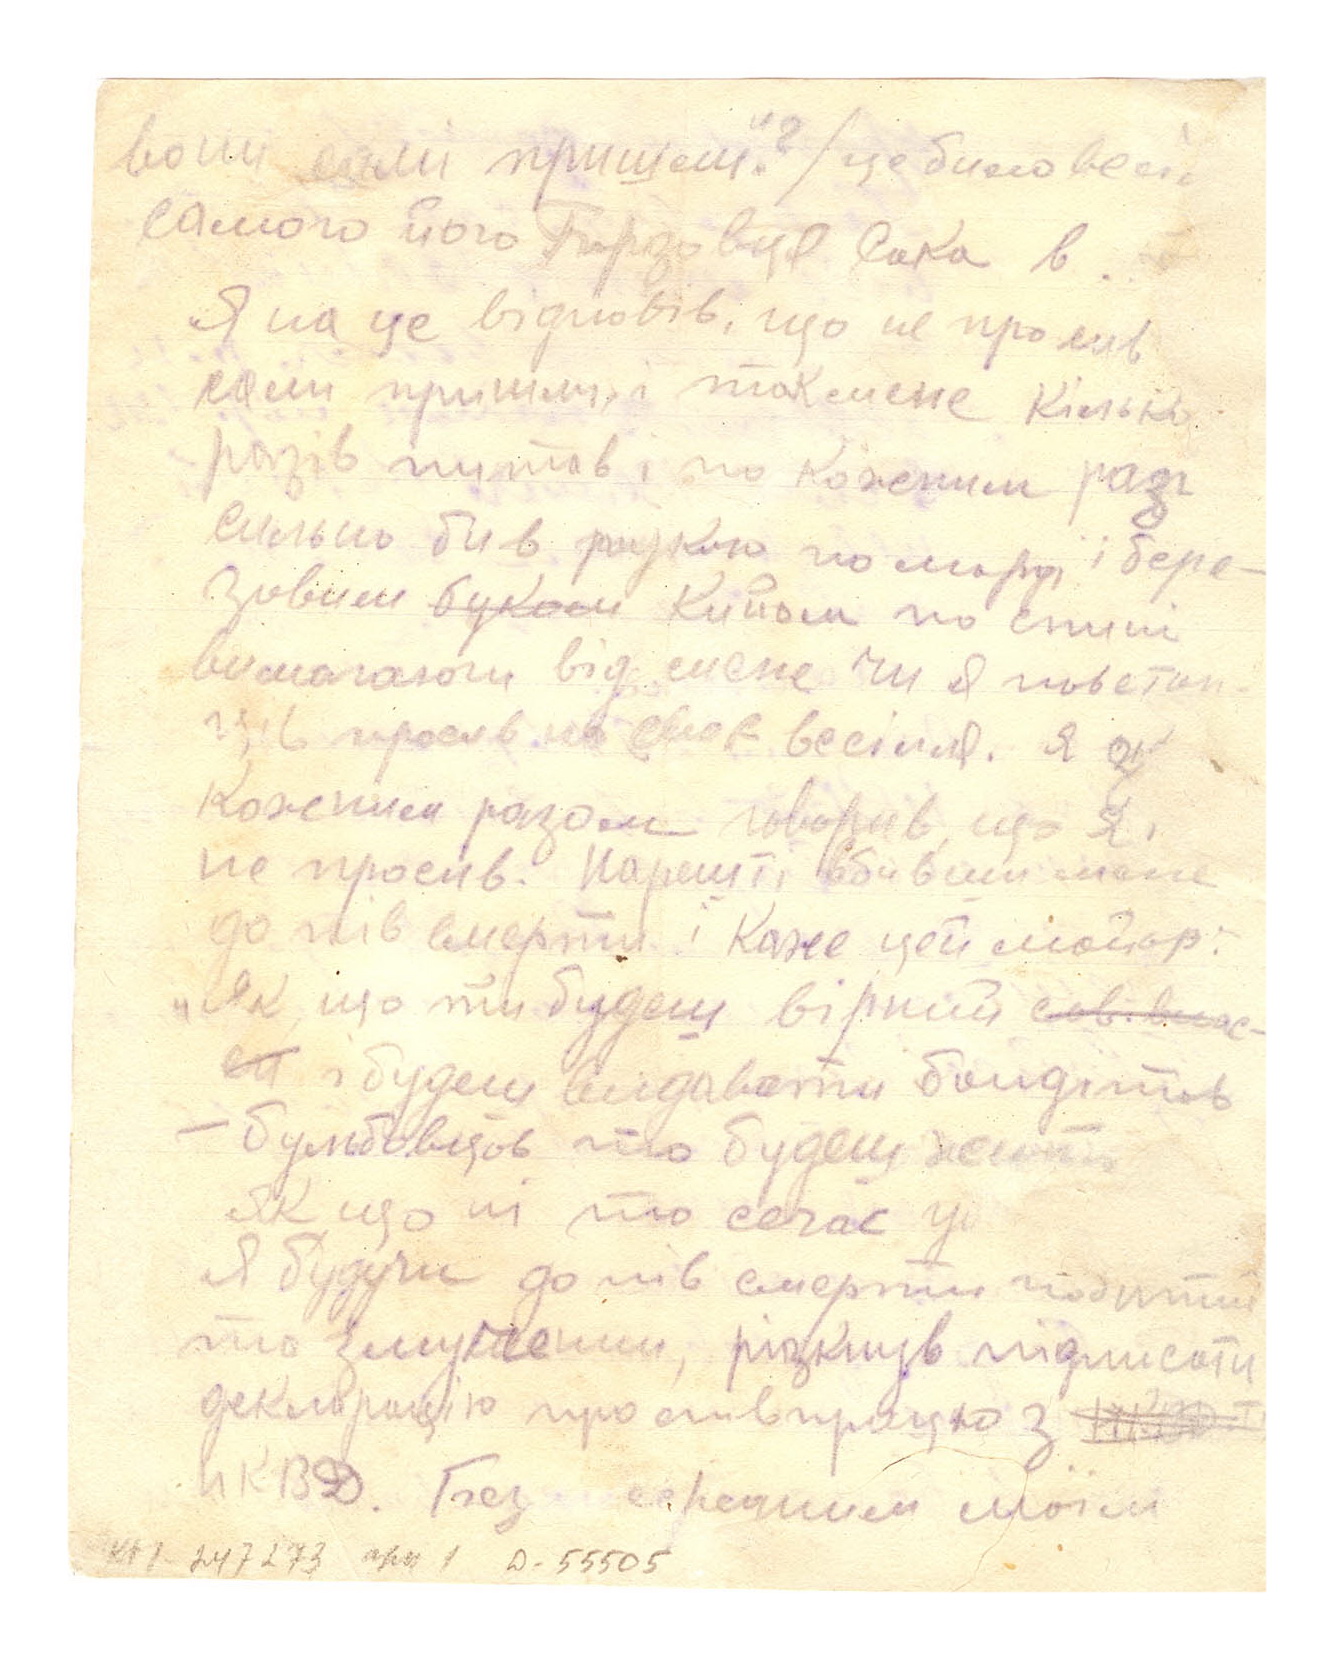 вони самі пришли."? / це було весіл
самого його
Я на це відповів, що не просив
сами пришли, і так мене кілька
разів питав і по кожним разі
сильно бив різкою по морді і бере-
зовим ~~буком~~ кийом по спині
вимагаючи від мене чи я повстан-
ців просив на весілля. Я з
кожним разом говорив, що я
не просив. Нарешті вбивши мене
до пів смерти і каже цей майор:
„Як що ти будеш вірний ~~сов. влас-~~
~~ти~~ і будеш видавати бандітов
– бульбовцов то будеш жити
Як що ні то сечас
Я будучи до пів смерти побитий
та змучений, різкнув підписати
декларацію про співпрацю з
НКВД. Без моїм
247273 Д-55505